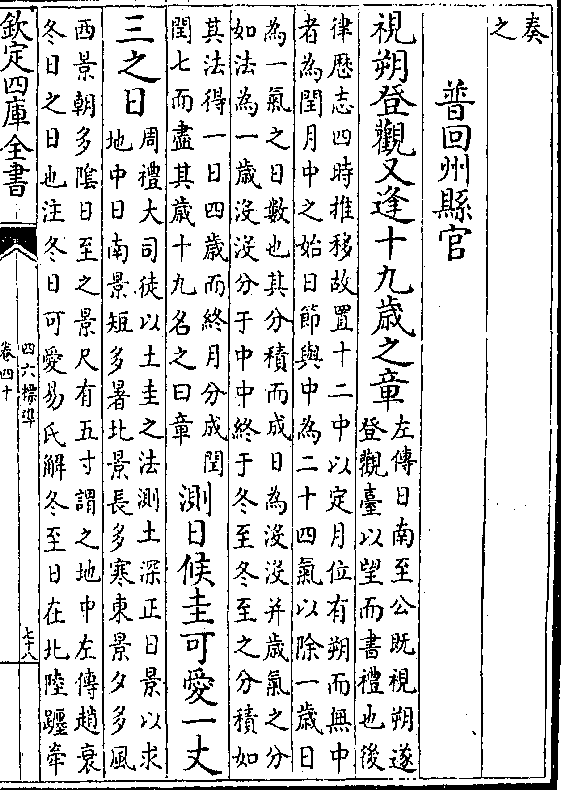 奏
之
普回州縣官
視朔登觀又逢十九歲之章
左傳日南至公既視朔遂
登觀臺以望而書禮也後
律歴志四時推移故置十二中以定月位有朔而無中
者為閏月中之始日節與中為二十四氣以除一歲日
為一氣之日數也其分積而成日為沒沒并歲氣之分
如法為一歲沒沒分于中中終于冬至冬至之分積如
其法得一日四歲而終月分成閏
閏七而盡其歲十九名之曰章
測日候圭可愛一丈
三之日
周禮大司徒以土圭之法測土深正日景以求
地中日南景短多暑北景長多寒東景夕多風
西景朝多隂日至之景尺有五寸謂之地中左傳趙衰
冬日之日也注冬日可愛易氏解冬至日在北陸躔牽
欽定四庫全書
四六標準
卷四十
七十八